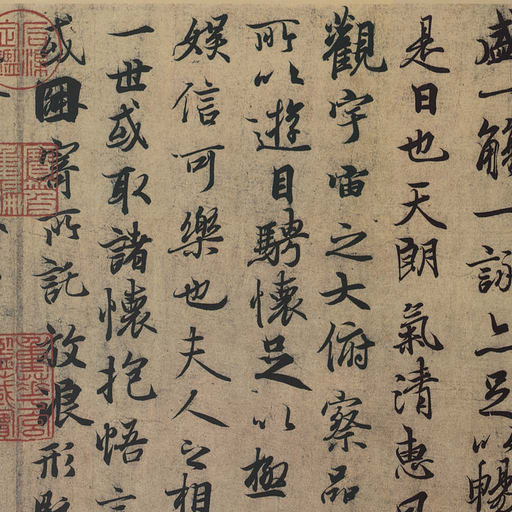 盛一觴一詠亦足以暢
是日也天朗氣清惠風
觀宇宙之大俯察品
所以遊目騁懷足以極
娛信可樂也夫人之相
一世或取諸懷抱悟言
或因寄所託放浪形骸